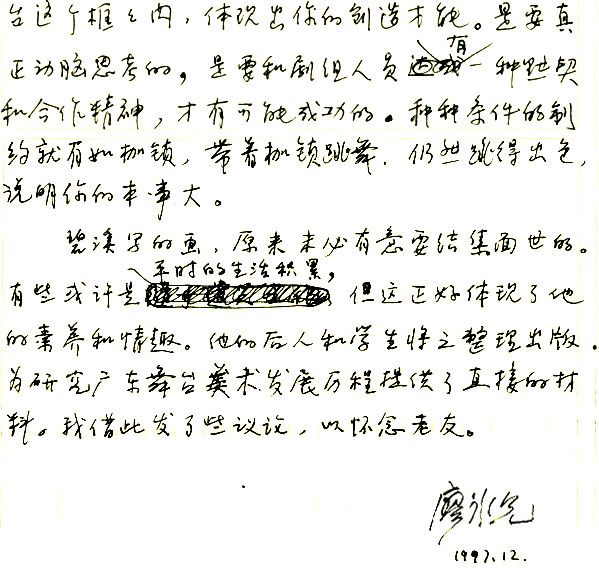 台这个框之内，体现出你的创造才能。是要真
正动脑思考的，是要和剧组人员有一种默契
和合作精神，才有可能成功的。种种条件的制
约就有如枷锁，带着枷锁跳舞，仍然跳得出色，
说明你的本事大。
碧溪写的画，原来未必有意要结集面世的。
平时的生活积累，
有些或许是 但这正好体现了他
的素养和情趣。他的后人和学生将之整理出版，
为研究广东舞台美术发展历程提供了直接的材
料。我借此发了些议论，以怀念老友。
1997.12.